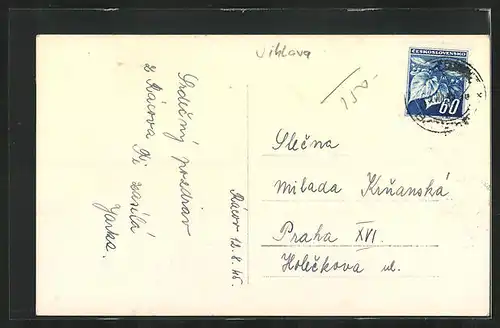 Jihlava
150-
ČESKOSLOVENSKO
60
Srdečný pozdrav
z Rácova Ti zasílá
Jarka.
Rácov 13.8.46.
Slečna
Milada Krňanská
Praha XVI.
Holečkova ul.